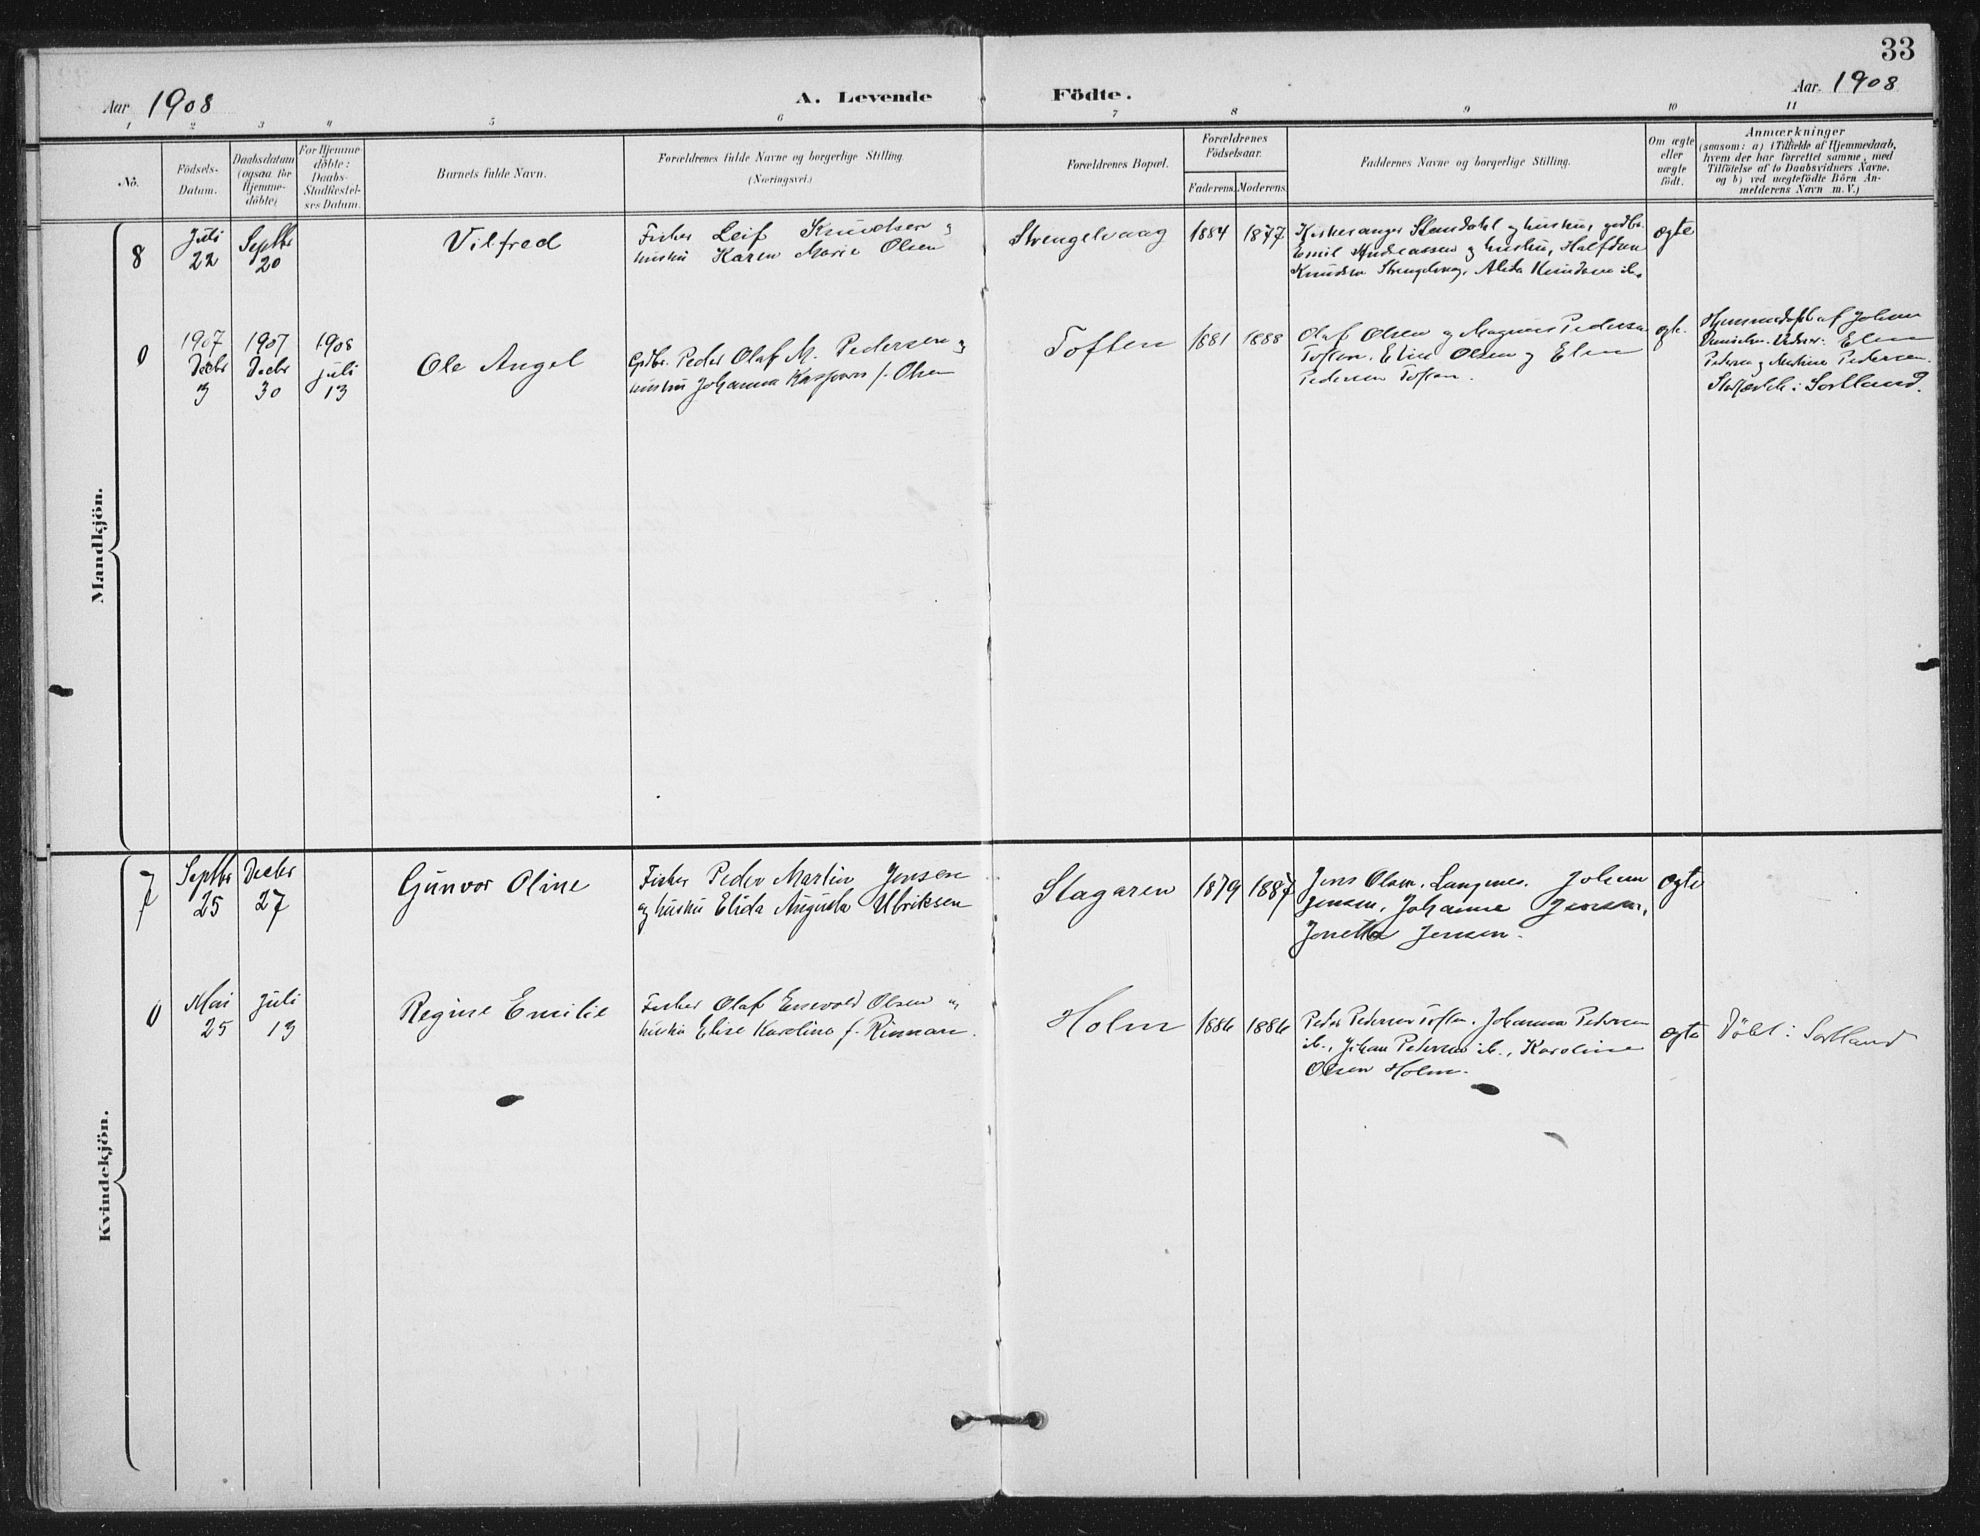 33
Aar 1908
A. Levende
Födte.
Aar 1908
1 2 3 4 5 6 7 8 9 10 11
No.
Födsels-
Datum.
Daabsdatum
(ogsaa for
Hjemme-
döbte)
For Hjemme-
döbte:
Daabs-
Stadfæstel-
ses Datum.
Barnets fulde Navn.
Forældrenes fulde Navne og borgerlige Stilling.
(Næringsvei.)
Forældrenes Bopæl.
Forældrenes
Födselsaar.
Faderens. Moderens.
Faddernes Navne og borgerlige Stilling.
Om ægte
eller
uægte
födt.
Anmærkninger
(saasom: a) i Tilfælde af Hjemmedaab,
hvem der har forrettet samme, med
Tilföielse af to Daabsvidners Navne,
og b) ved uægtefödte Börn An-
melderens Navn m. V.)
Mandkjön.
8
Juli
22
Septbr
20
Vilfred
Fisker Leif Knudsen og
hustru Karen Marie Olsen
Strengelvaag
1884
1877
Kirkesanger Stensdahl og hustru, gdbr.
Emil Andreassen og hustru, Halfdan
Knudsen Strengelvag, Alida Knudsen
ægte
0
1907
Decbr
3
1907
Decbr
30
1908
Juli
13
Ole Angel
Gdbr. Peder Olaf M. Pedersen og
hustru Johanna f. Olsen
Toften
1881
1888
Olaf Olsen og Magnus Pedersen
Toften. Elise Olsen og Elen
Pedersen Toften.
ægte.
Hjemmedøbt af Johan
Elen
Pedersen og Pedersen.
i Sortland.
Kvindekjön.
7
Septbr
25
Decbr
27
Gunvor Oline
Fisker Peder Martin Jensen
og hustru Elida Augusta Ulriksen
Stagaren
1879
1887
Jens Olsen, Langnes. Johan
Jensen, Johanne Jensen,
Jonetta Jensen.
ægte
0
Mai
25
Juli
13
Regine Emilie
Fisker Olaf Enevold Olsen og
hustru Elise Karolina f. Kinman.
Holm
1886
1886
Peder Pedersen Toften. Johanna Pedersen
ib., Johan Pedersen ib., Karoline
Olsen Holm.
ægte
Döbt i Sortland